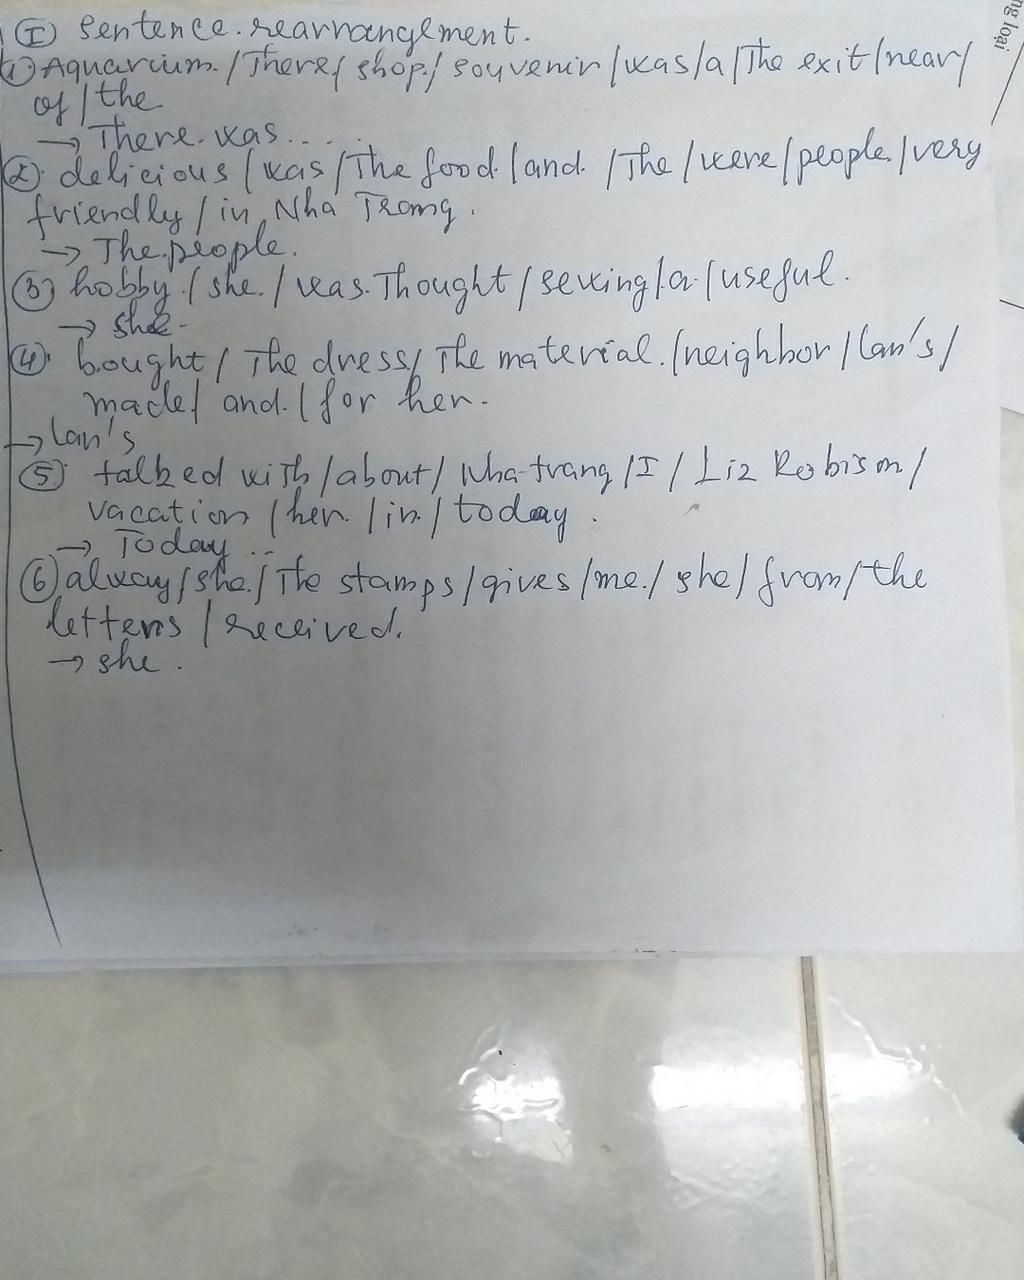 (I) Sentence rearrangement.
(1) Aquarium / There / shop / souvenir / was / a / The exit / near /
of / the
→ There was ....
(2) delicious / was / The food / and / The / were / people / very
friendly / in Nha Trang.
→ The people.
(3) hobby / she / was Thought / sewing / a / useful.
→ she
(4) bought / The dress / The material / neighbor / Lan's /
made / and / for her.
→ Lan's
(5) talked with / about / Nha-trang / I / Liz Robison /
vacation / her / in / today.
→ Today ...
(6) alway / she / The stamps / gives / me / she / from / the
letters / received.
→ she.
ng loại